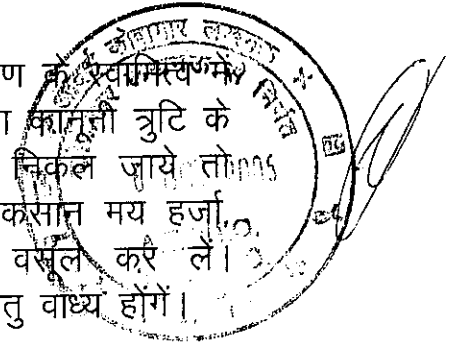 ण के स्वामित्व में
ा कानूनी त्रुटि के
निकल जाये तो
कसान मय हर्जा,
वसूल कर लें।
तु वाध्य होंगें।
कोषागार